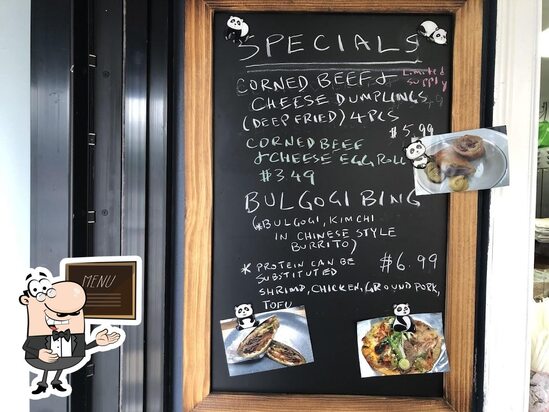 SPECIALS
CORNED BEEF & Limited
CHEESE DUMPLINGS supply
(DEEP FRIED) 4 PCS
$5.99
CORNED BEEF
& CHEESE EGG ROLL
$3.49
BULGOGI BING
(*BULGOGI, KIMCHI
IN CHINESE STYLE
BURRITO)
* PROTEIN CAN BE $6.99
SUBSTITUTED
SHRIMP, CHICKEN, GROUND PORK,
TOFU
MENU